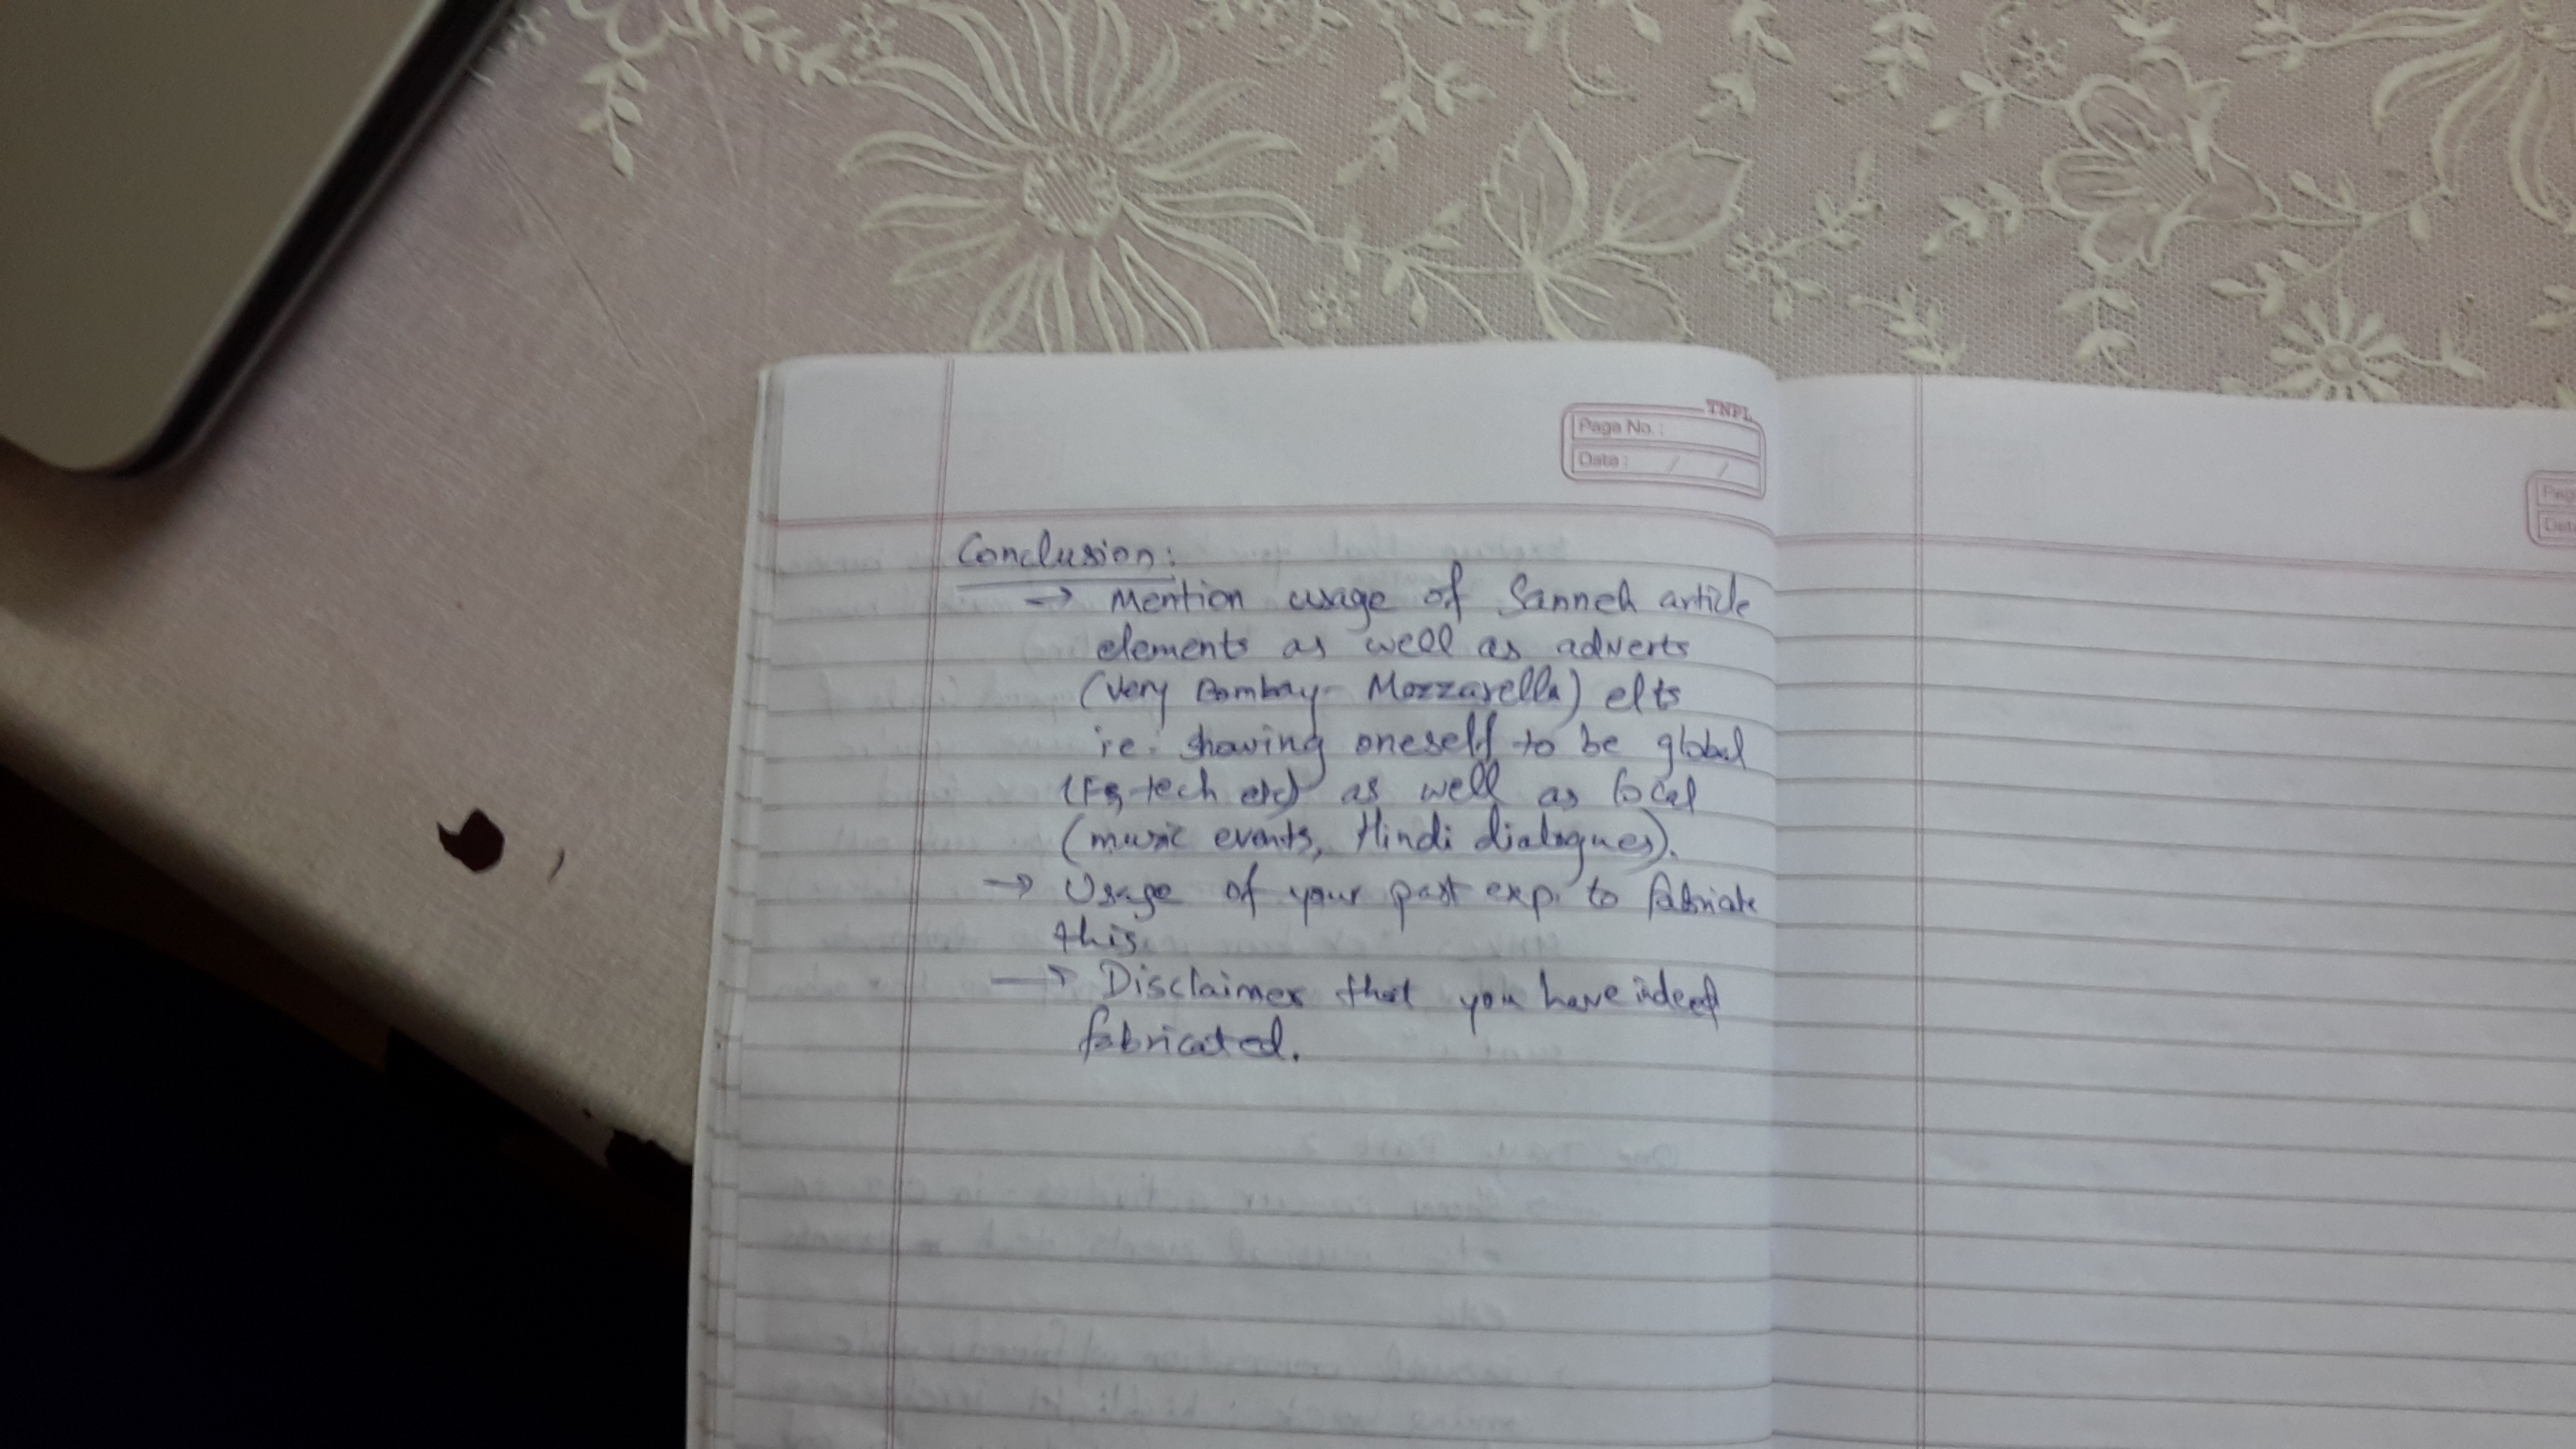 TNPL
Page No. :
Date : / /
Conclusion:
→ Mention usage of Sanneh article
elements as well as adverts
(Very Bombay- Mozzarella) elts
ie. showing oneself to be global
(Fg, tech etc) as well as local
(music events, Hindi dialogues).
→ Usage of your past exp. to fabricate
this.
→ Disclaimer that you have indeed
fabricated.